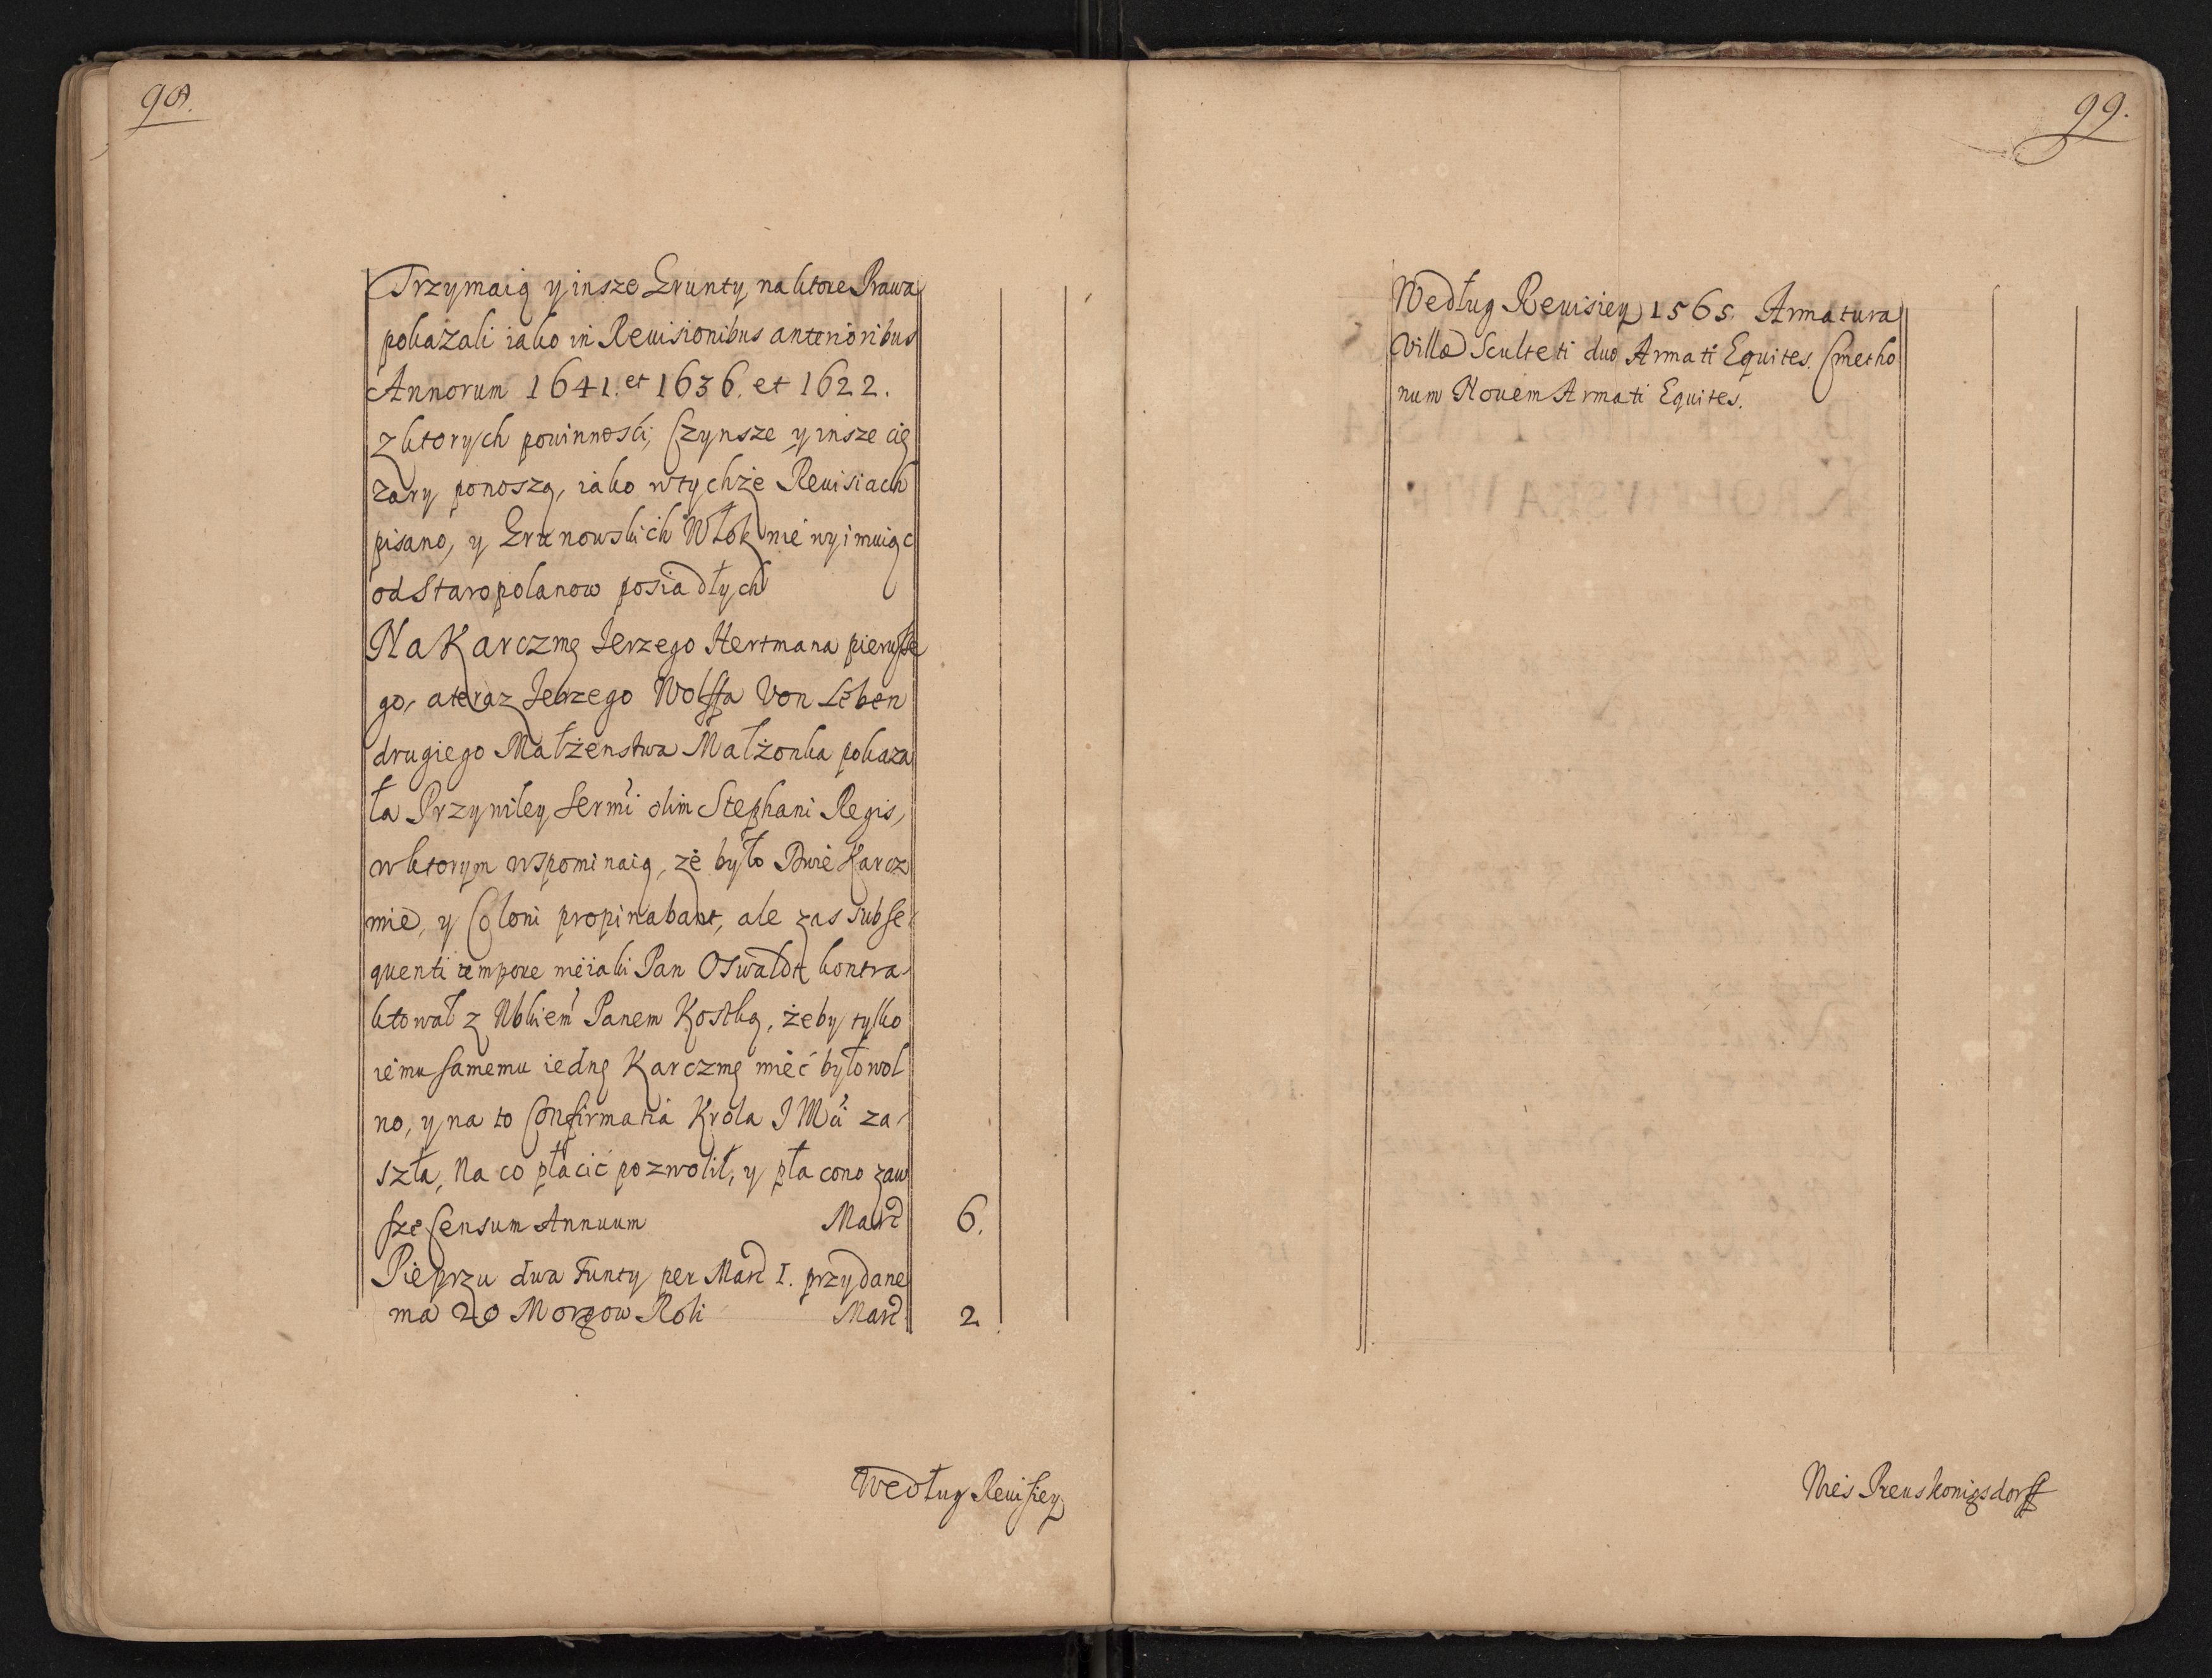 98.
Trzymaią y insze Grunty na ktore Prawa
pokazali iako in Reuisionibus anterioribus
Annorum 1641. et 1636. et 1622.
z ktorych powinnosci, Czynsze y insze cię
zary ponoszą, iako w tychże Reuisiach
pisano, y Grunowskich Włok nie wyimuiąc
od Staropolanow posiadłych
Na Karczmę Jerzego Hertmana pierwsze
go, a teraz Jerzego Wolffa Von Leben
drugiego Małżenstwa Małżonka pokaza
ła Przywiley Sermi olim Stephani Regis,
w ktorym wspominaią, ze było Dwie Karcz
mie, y Coloni propinabant, ale zas subse
quenti tempore nieiaki Pan Oswaldt kontra
ktował z Nbkiem Panem Kostką, żeby tylko
iemu samemu iednę Karczmę mieć było wol
no, y na to Confirmatia Krola J Mci za
szła, Na co płacić pozwolił, y płacono zaw
sze Censum Annuum Marc 6.
Pieprzu dwa Funty per Marc 1. przydane
ma 20 Morgow Roli Marc 2
Według Reuisiey
99.
Według Reuisiey 1565. Armatura
Villæ Sculteti duo Armati Equites. Cmetho
num Nouem Armati Equites.
Wies Preuskonigsdorff